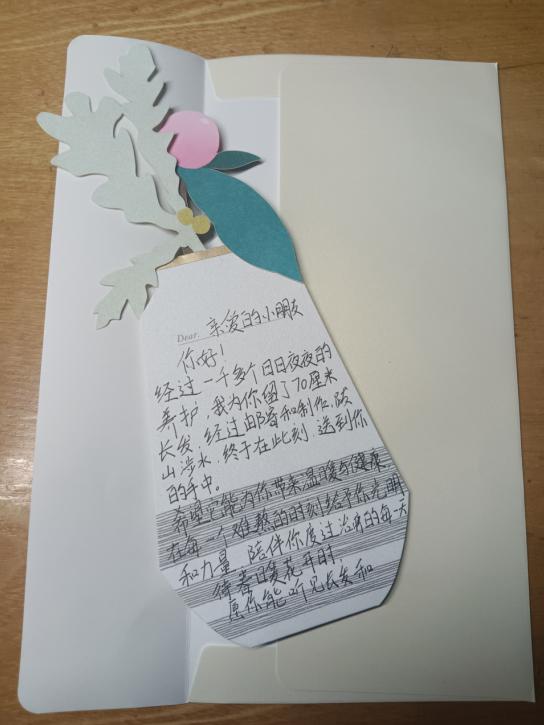 Dear. 亲爱的小朋友
你好!
经过一千多个日日夜夜的
养护,我为你留了70厘米
长发,经过邮寄和制作,跋
山涉水,终于在此刻,送到你
的手中。
希望它能为你带来温暖与健康,
在每一个难熬的时刻给予你光明
和力量,陪伴你度过治病的每一天
待春日复花开时
愿你能听见长发和